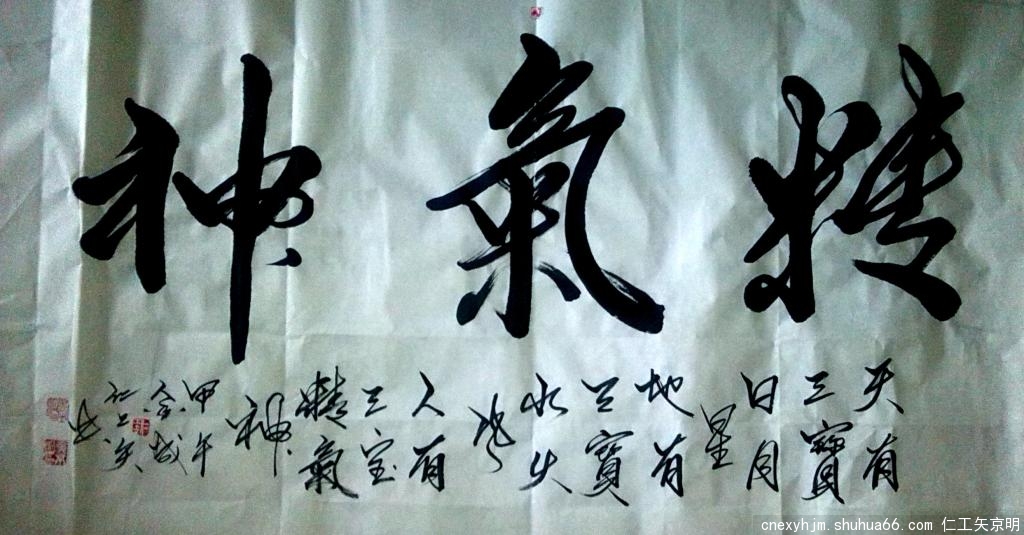 精氣神
天有
三寶
日月
星
地有
三寶
水火
風
人有
三宝
精氣
神
甲午
金城
仁工矢
书
cnexyhjm.shuhua66.com 仁工矢京明